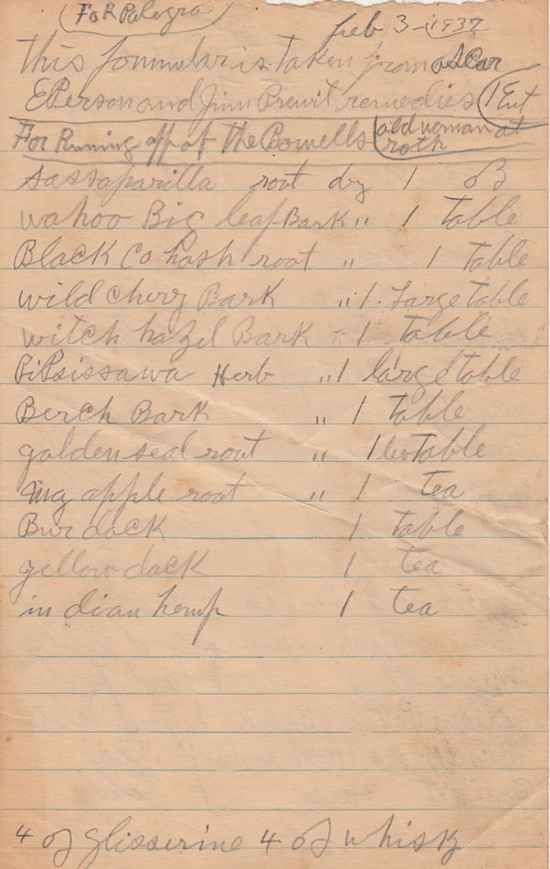 (For Palegra)
feb 3-1937
This formular is taken from ascar
EPerson and Jim Prewit remedies (1 Ent
For Runing off of the Bowells (old woman at
roth
Sassaparilla root dry 1 oz
wahoo Big leaf Bark " 1 table
Black Cohash root " 1 table
wild chery Bark " 1 Large table
witch hazel Bark " 1 table
PiPsissawa Herb " 1 large table
Berch Bark " 1 table
goldenseal root " 1 table
may apple root " 1 tea
Burdock 1 table
yellow dock 1 tea
indian hemp 1 tea
4 of glisserine 4 of whisk